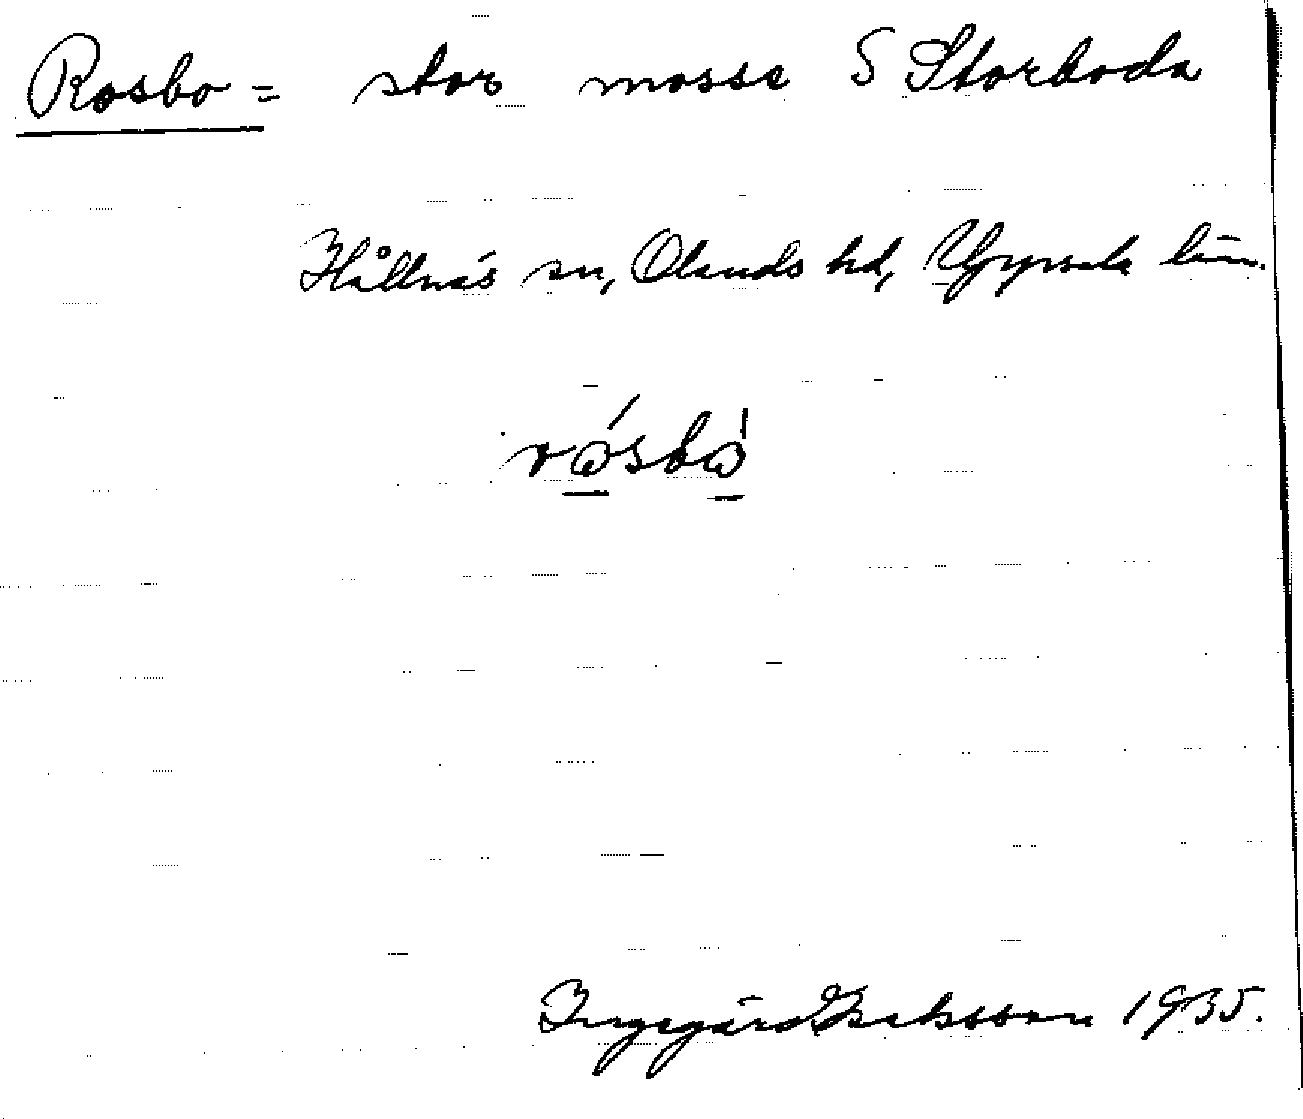 Rosbo = stor mosse S Storboda
Hållnäs sn, Olands hd, Uppsala län.
rósbò
Ingegärd Isaksson 1935.